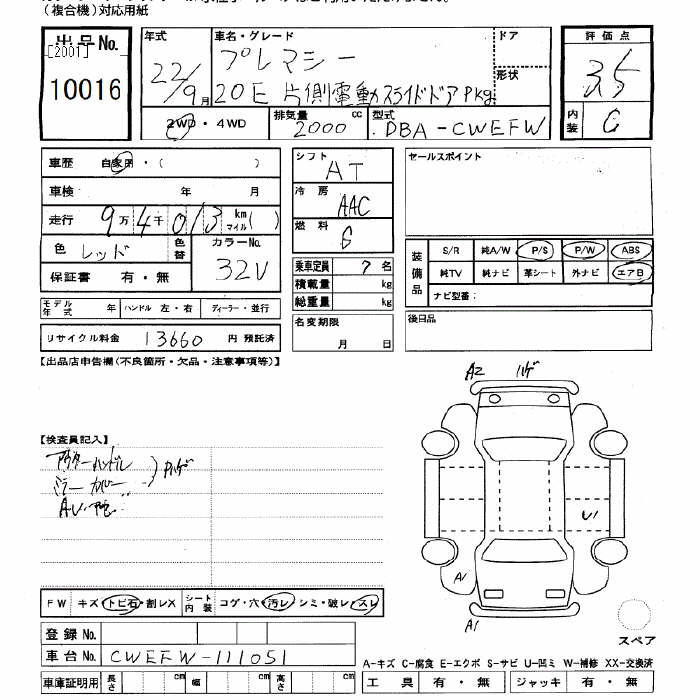 (複合機)対応用紙
出品No. [2001]
10016
年式 22/9月
車名・グレード プレマシー
20E 片側電動スライドドアPkg
ドア
形状
2WD・4WD
排気量 2000 cc
型式 DBA-CWEFW
評価点 3.5
内装 C
車歴 自家用・( )
車検 年 月
走行 9万4千013 km マイル( )
色 レッド 色替 カラーNo. 32V
保証書 有・無
モデル年式 年 ハンドル 左・右 ディーラー・並行
リサイクル料金 13660 円 預託済
シフト AT
冷房 AAC
燃料 G
乗車定員 7名
積載量 kg
総重量 kg
名変期限 月 日
セールスポイント
装備品 S/R 純A/W P/S P/W ABS
純TV 純ナビ 革シート 外ナビ エアB
ナビ型番:
後日品
【出品店申告欄(不良箇所・欠品・注意事項等)】
A2 ハゲ
【検査員記入】
アウターハンドル
ミラーカバー
ハゲ
U1
A1
A1
FW キズ・トビ石・割レX シート内装 コゲ・穴・汚レ・シミ・破レ・スレ
スペア
登録No.
車台No. CWEFW-111051
A-キズ C-腐食 E-エクボ S-サビ U-凹ミ W-補修 XX-交換済
車庫証明用 長さ cm 幅 cm 高さ cm
工具 有・無 ジャッキ 有・無